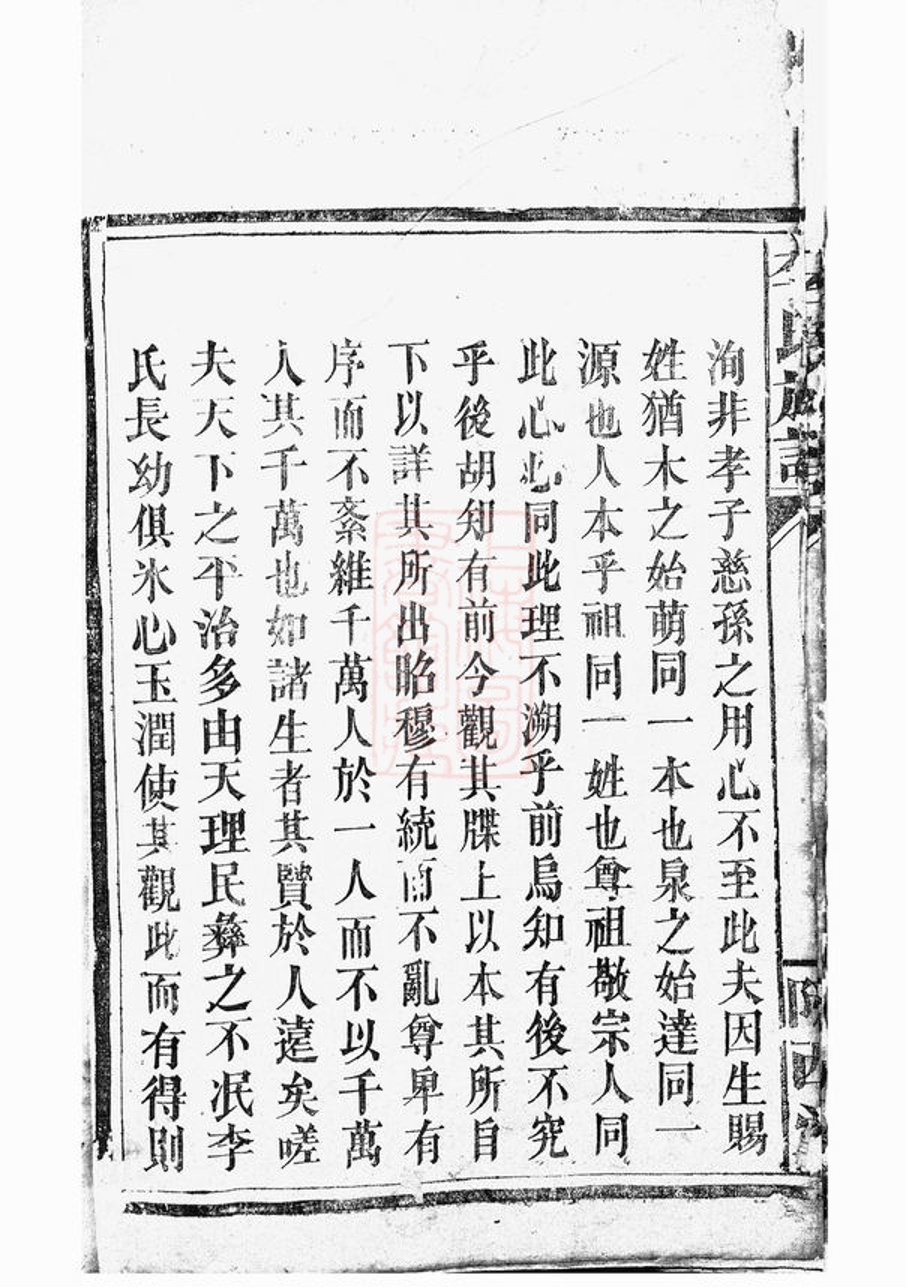 洵非孝子慈孫之用心不至此夫因生賜
姓猶木之始萌同一本也泉之始達同一
源也人本乎祖同一姓也尊祖敬宗人同
此心心同此理不溯乎前烏知有後不究
乎後胡知有前今觀其牒上以本其所自
下以詳其所出昭穆有統而不亂尊卑有
序而不紊維千萬人於一人而不以千萬
人其千萬也如諸生者其賢於人遠矣嗟
夫天下之平治多由天理民彝之不泯李
氏長幼俱氷心玉潤使其觀此而有得則